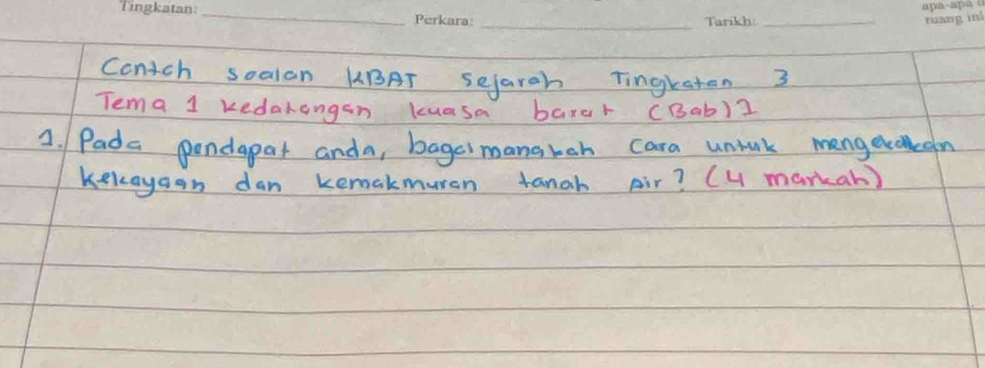 Tingkatan:
Perkara:
Tarikh:
apa-apa
ruang ini
Contoh soalan KBAT Sejarah Tingkatan 3
Tema 1 kedatangan kuasa barat (Bab) 1
1. Pada pendapat anda, bagaimanakah cara untuk mengekalkan
kekayaan dan kemakmuran tanah air? (4 markah)